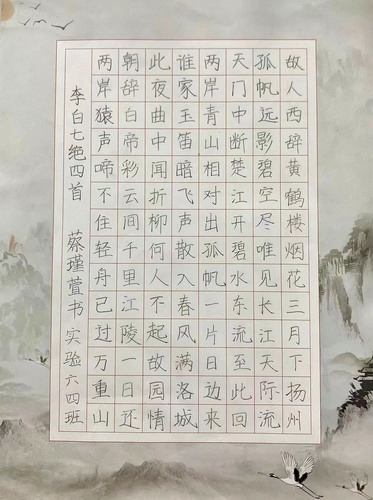 故人西辞黄鹤楼烟花三月下扬州
孤帆远影碧空尽唯见长江天际流
天门中断楚江开碧水东流至此回
两岸青山相对出孤帆一片日边来
谁家玉笛暗飞声散入春风满洛城
此夜曲中闻折柳何人不起故园情
朝辞白帝彩云间千里江陵一日还
两岸猿声啼不住轻舟已过万重山
李白七绝四首 蔡瑾萱书 实验六四班